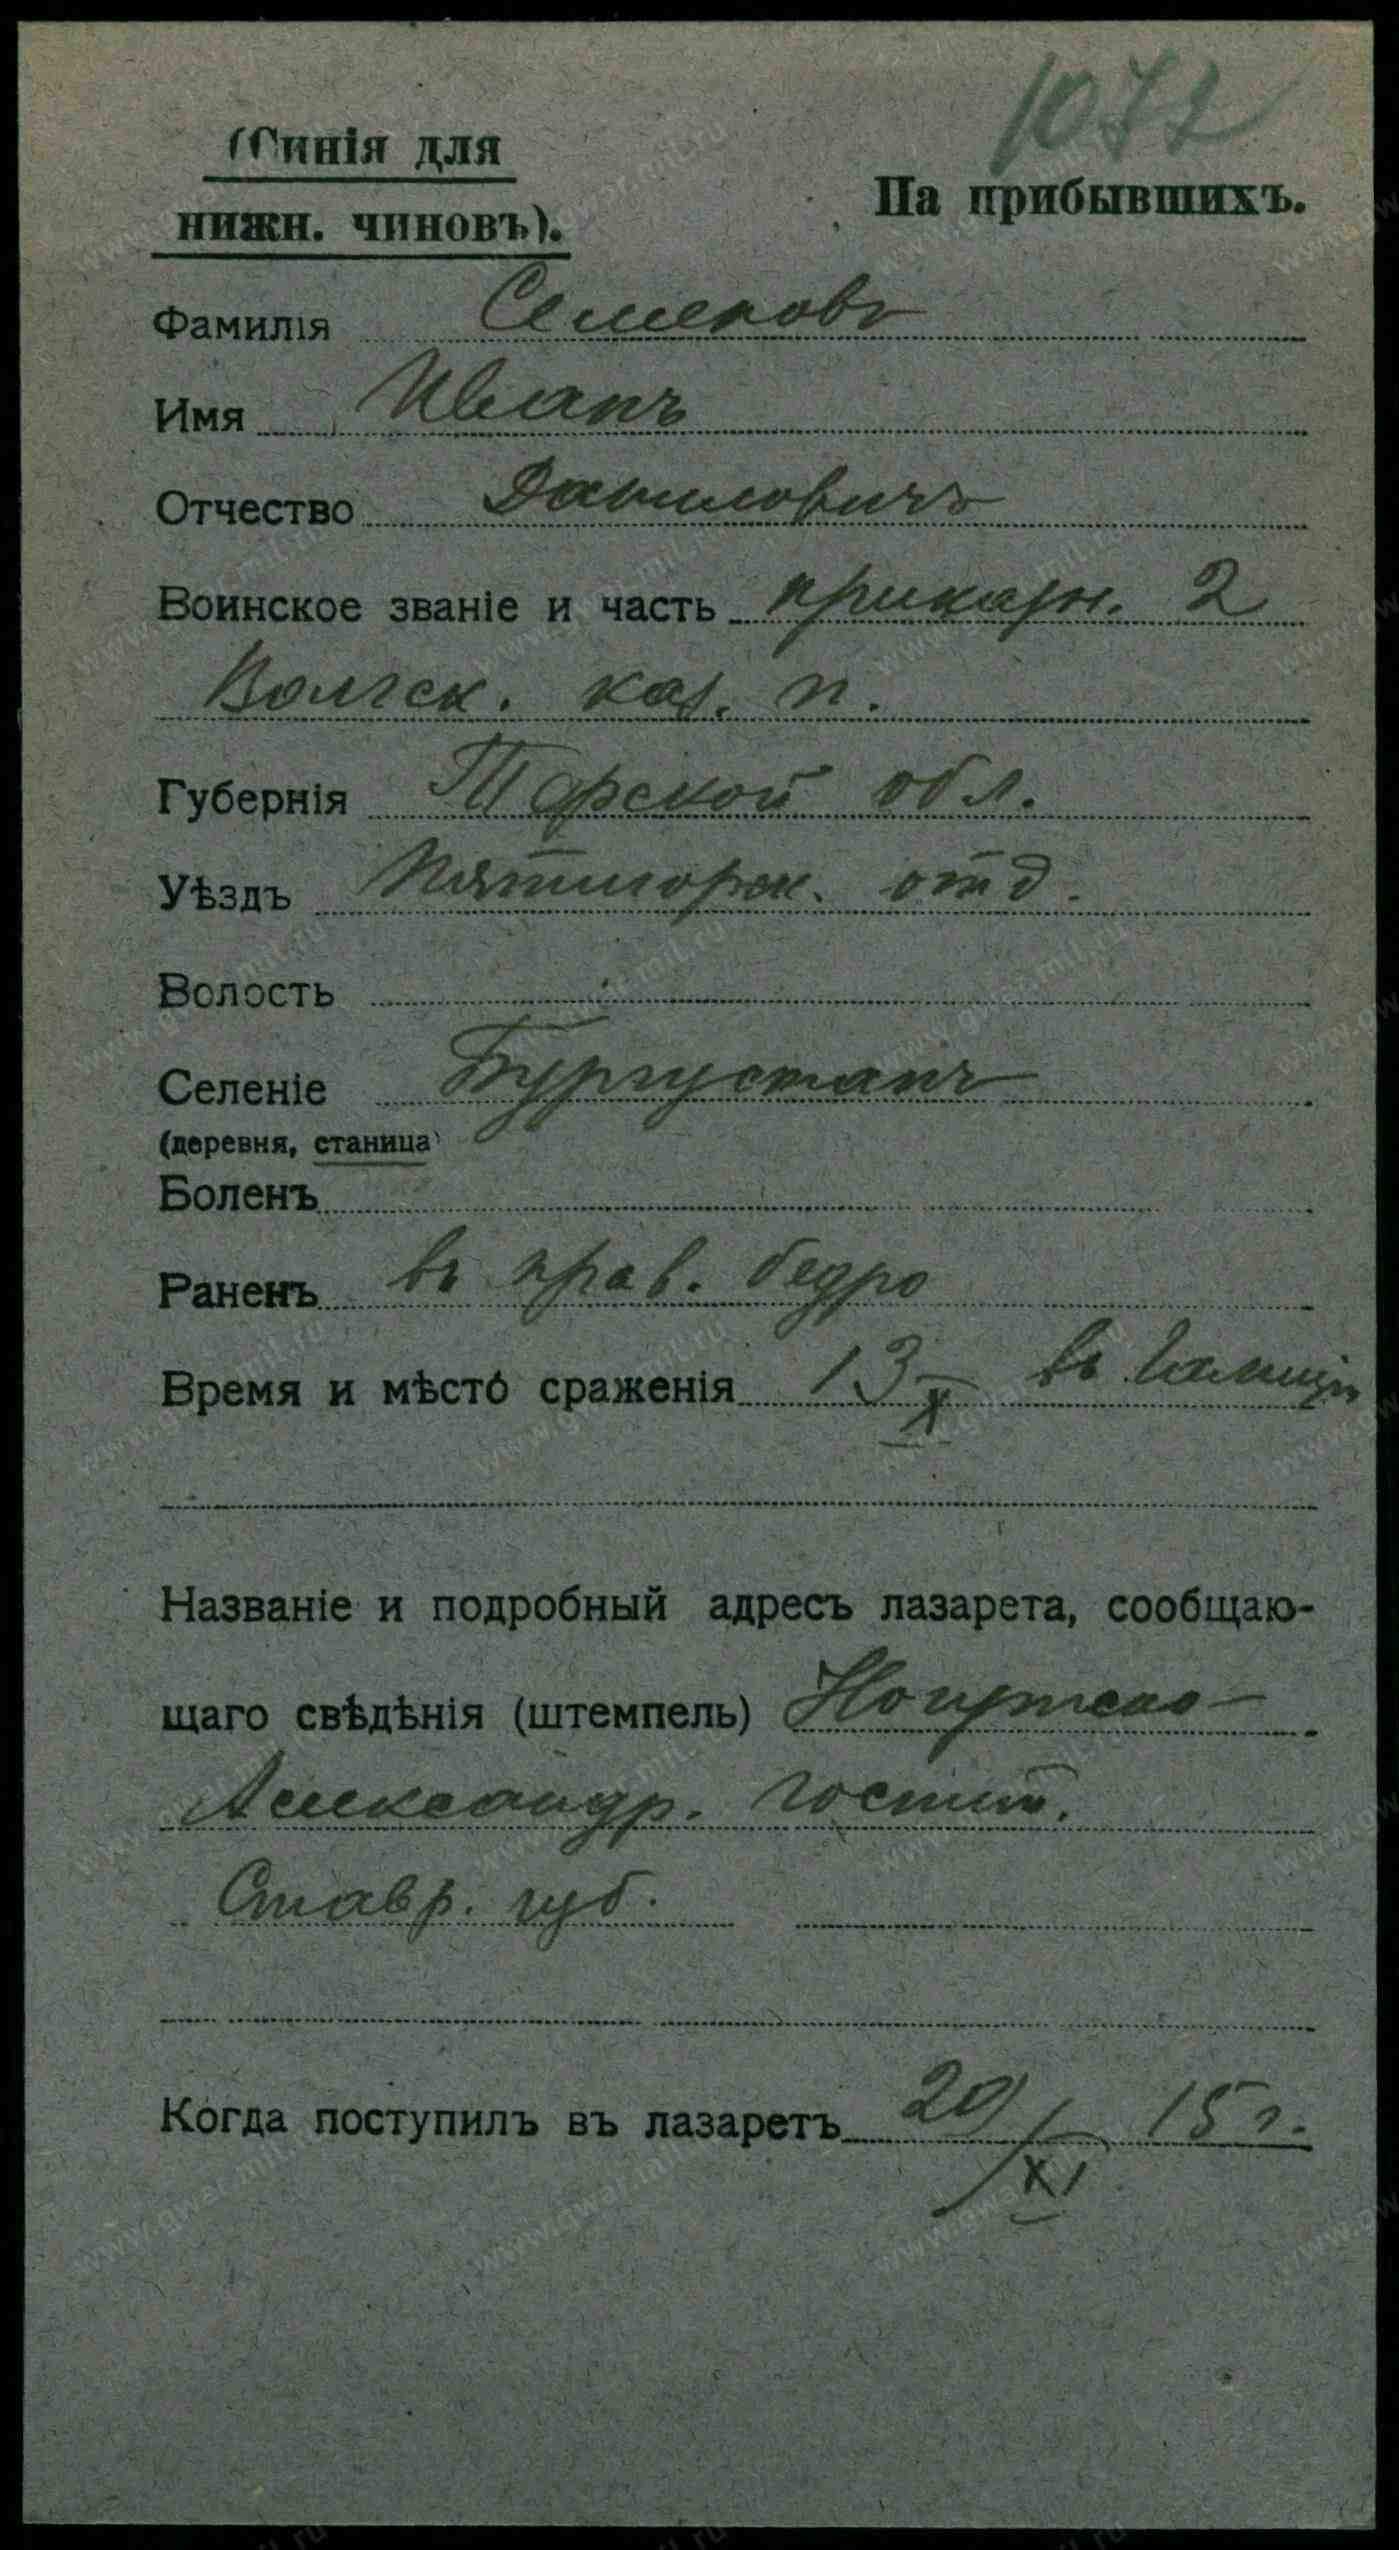 1072
(Синія для
нижн. чиновъ).
На прибывшихъ.
Фамилія Семеновъ
Имя Иванъ
Отчество Даниловичъ
Воинское званіе и часть приказн. 2
Волгск. каз. п.
Губернія Терской обл.
Уѣздъ Пятигорск. отд.
Волость
Селеніе Бургустанъ
(деревня, станица)
Боленъ
Раненъ въ прав. бедро
Время и мѣсто сраженія 13 X въ Галиціи
Названіе и подробный адресъ лазарета, сообщаю-
щаго свѣдѣнія (штемпель)
Александр. госпит.
Ставр. губ.
Когда поступилъ въ лазаретъ 20/XI 15 г.
www.gwar.mil.ru